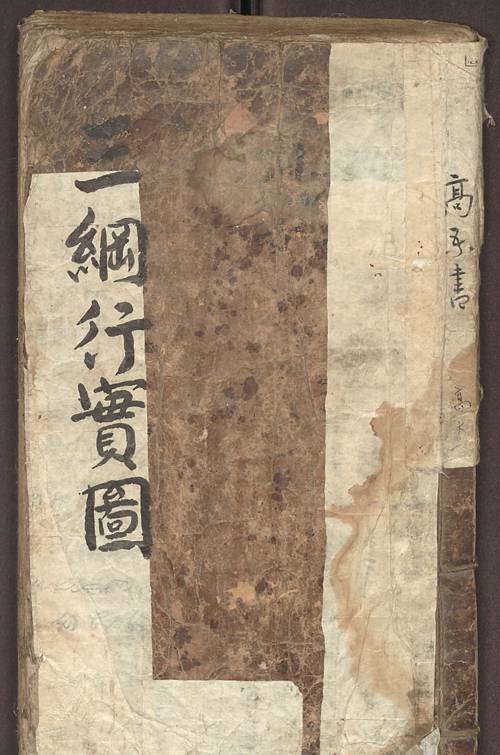 三綱行實圖
高
書
高